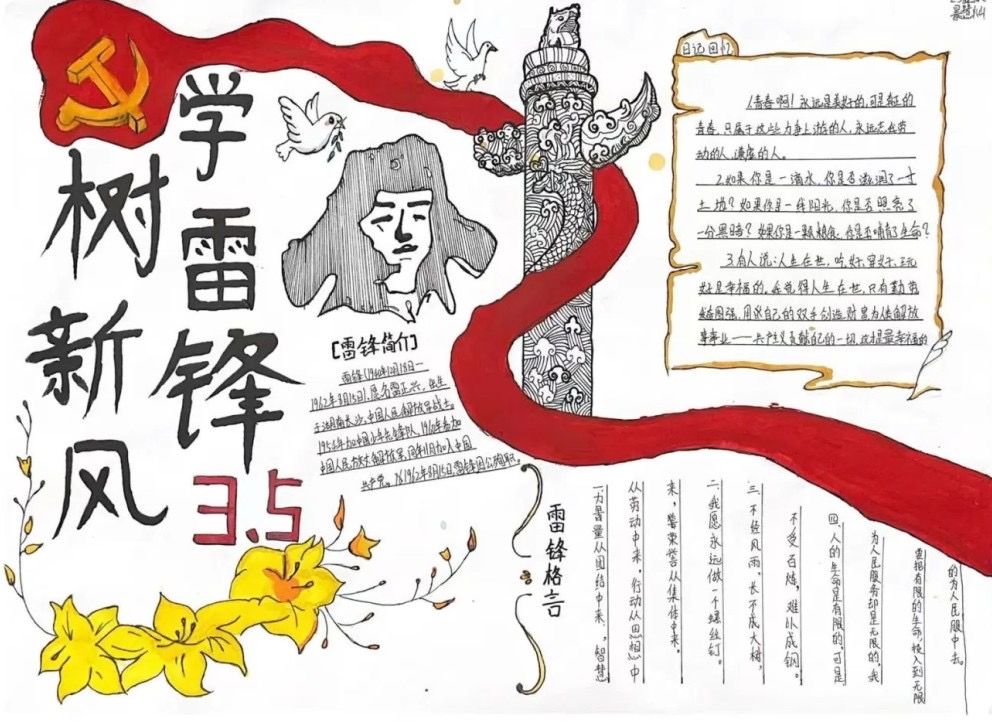 学雷锋
树新风
3.5
[雷锋简介]
雷锋(1940年12月18日—
1962年8月15日),原名雷正兴,出生
于湖南长沙,中国人民解放军战士。
1954年加中国少年先锋队,1960年参加
中国人民放大解放军,同年11月加入中国
共产党。1961962年8月15日,雷锋因公殉职。
日记回忆
1.青春啊!永远是美好的,可是真正的
青春,只属于这些力争上游的人,永远忘在劳
动的人,谦虚的人。
2.如果你是一滴水,你是否滋润了一寸
土地?如果你是一线阳光,你是否照亮了
一分黑暗?如果你是一颗粮食,你是否哺育了生命?
3.有人说:人生在世,吃好、穿好、玩
好是幸福的。我觉得人生在世,只有勤劳
发奋图强,用我自己的双手创造财富为人类解放
事业——共产主义贡献自己的一切,这才是最幸福的
雷锋格言
一.力量从团结中来,智慧
从劳动中来,行动从思想中
来,荣誉从集体中来。
二.我愿永远做一个螺丝钉。
三.不经风雨,长不成大树,
不受百炼,难以成钢。
四.人的生命是有限的,可是
为人民服务却是无限的,我
要把有限的生命,投入到无限
的为人民服中去。